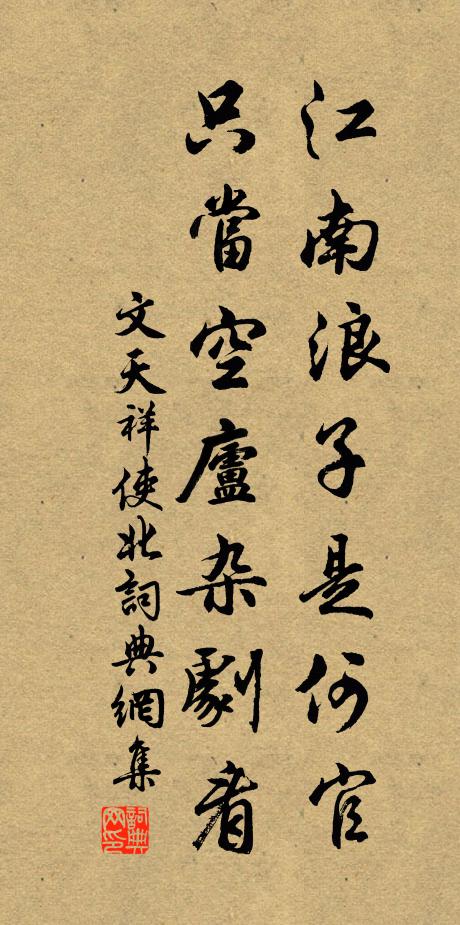 江南浪子是何官
只當空廬杂劇看
文天祥使北詞典網集
詞典網印